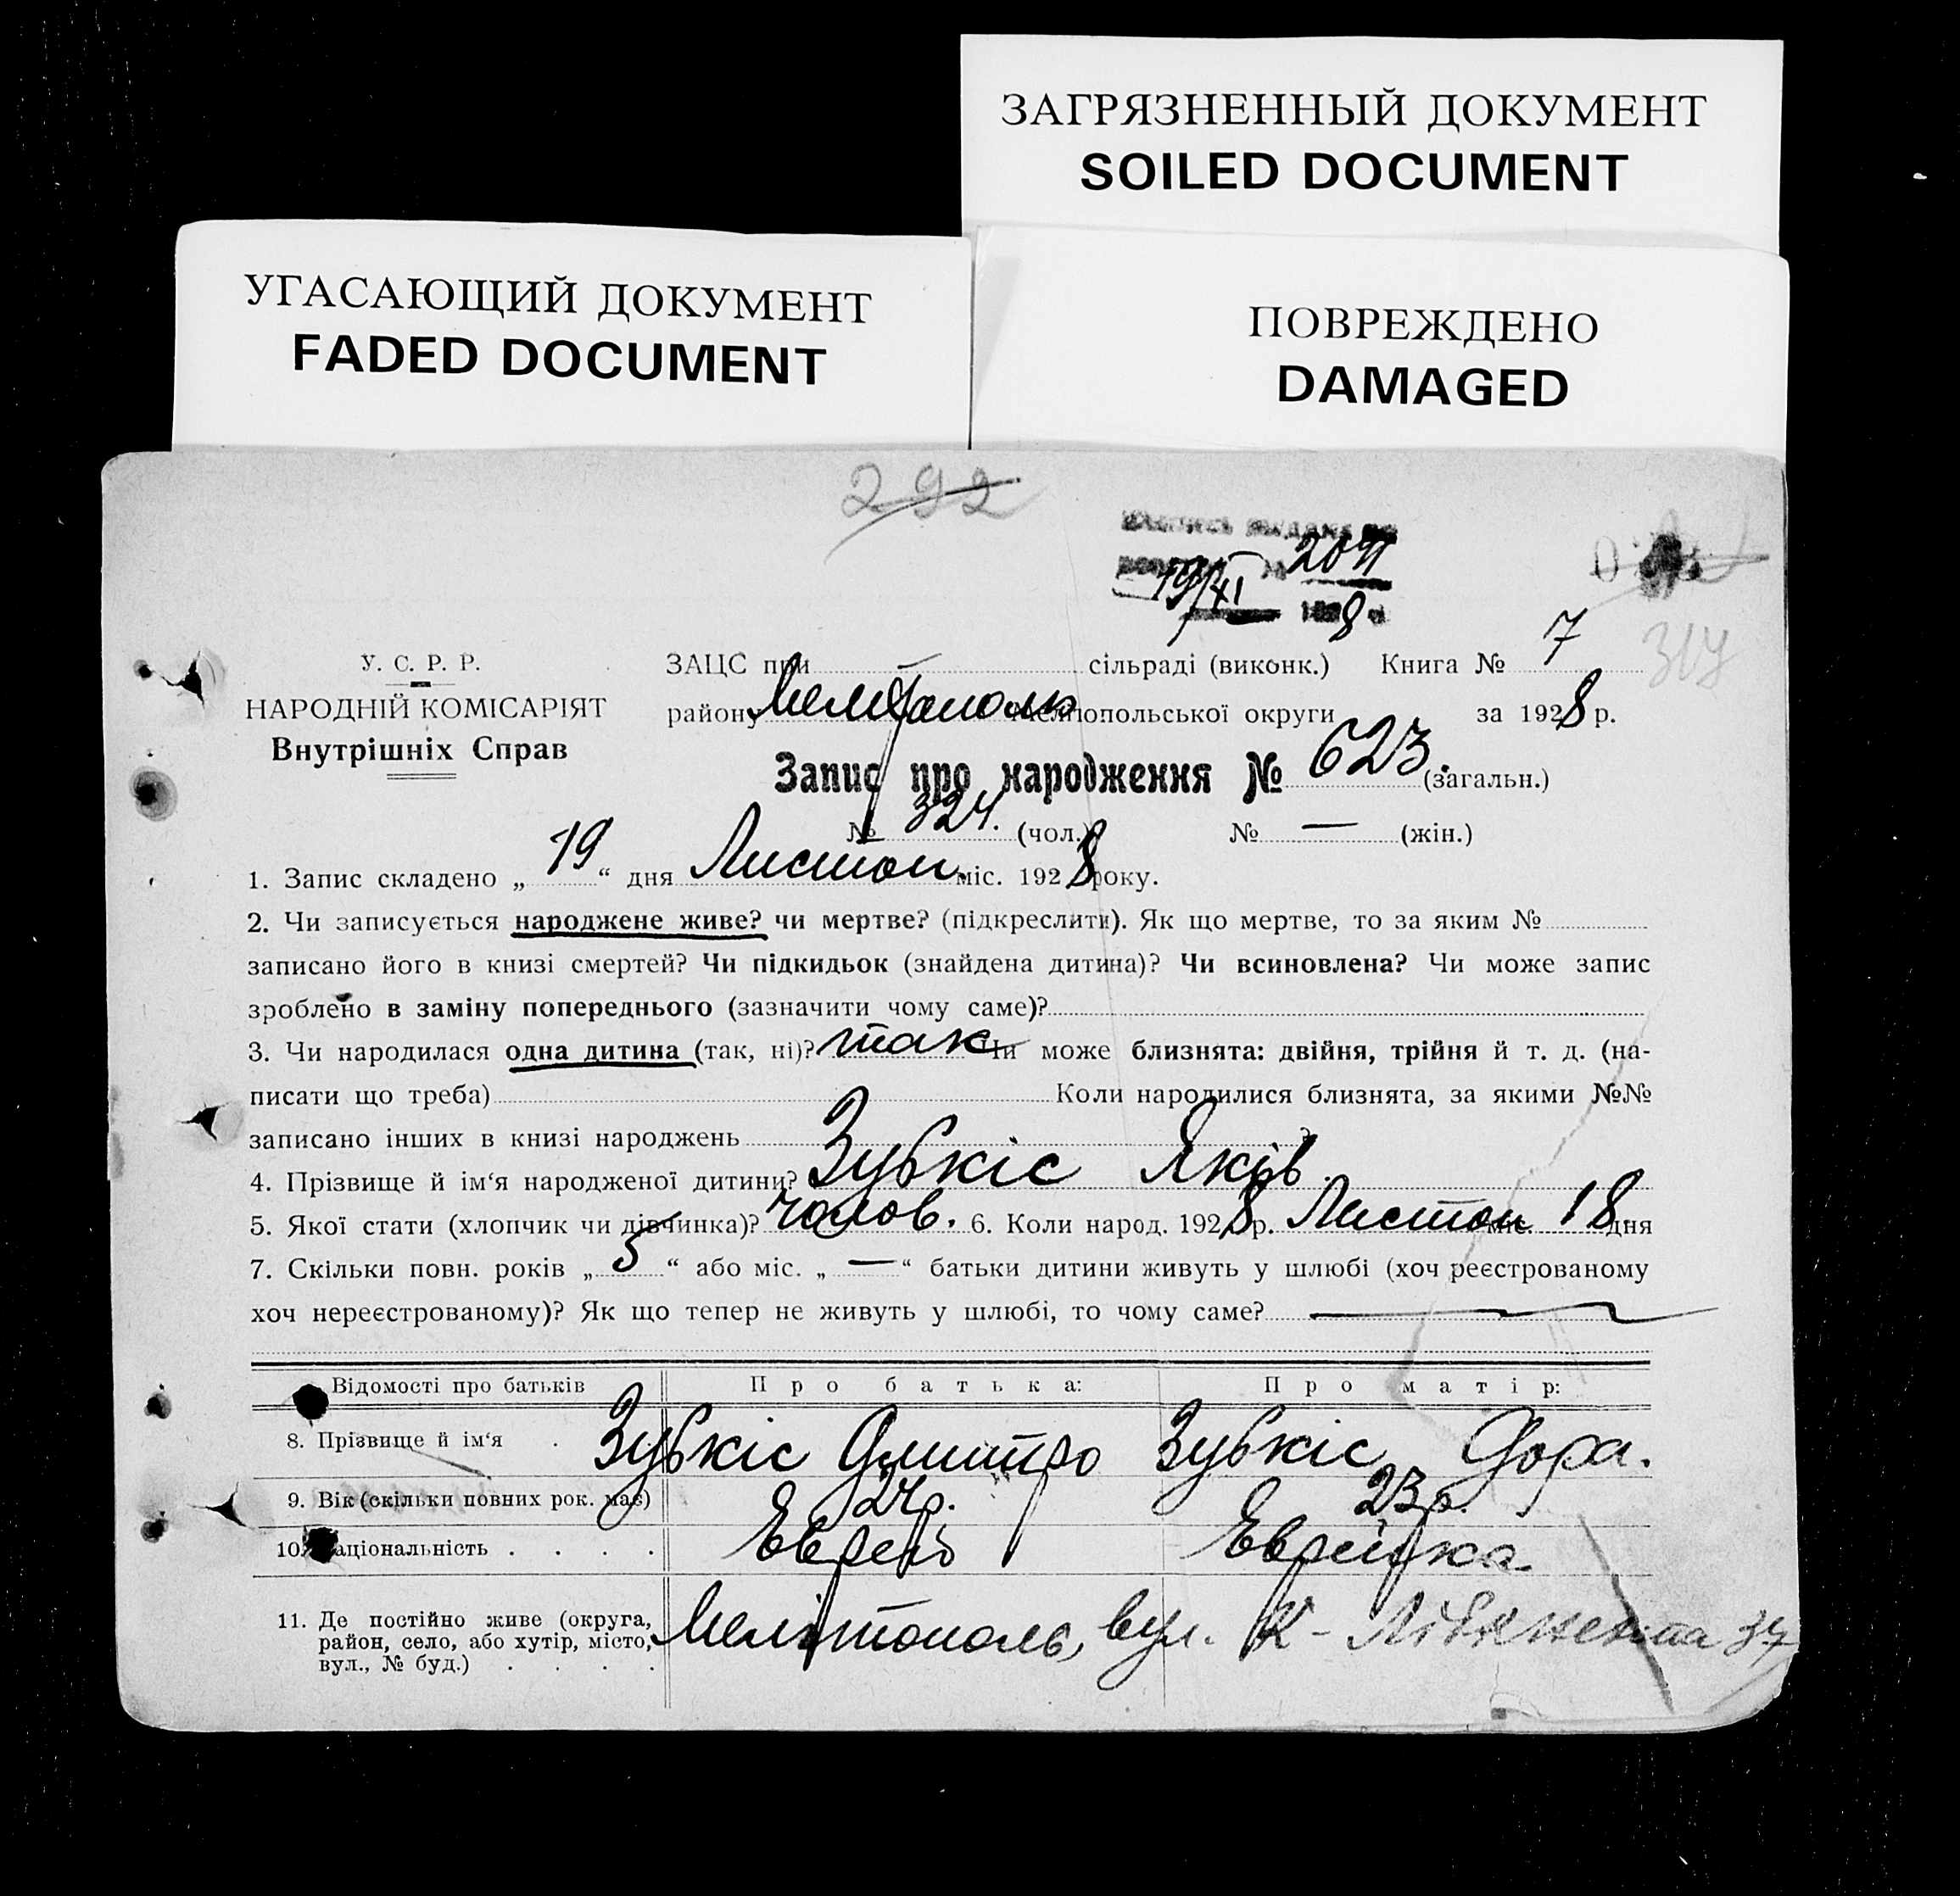 ЗАГРЯЗНЕННЫЙ ДОКУМЕНТ
SOILED DOCUMENT
УГАСАЮЩИЙ ДОКУМЕНТ
FADED DOCUMENT
ПОВРЕЖДЕНО
DAMAGED
292
№ 2091
19/XI 1928
317
У. С. Р. Р.
НАРОДНІЙ КОМІСАРІЯТ
Внутрішніх Справ
ЗАЦС при — сільраді (виконк.) Книга № 7
району Мелітополь Мелітопольської округи за 1928 р.
Запис про народження № 623. (загальн.)
№ 324. (чол.) № — (жін.)
1. Запис складено „ 19 “ дня Листоп. міс. 1928 року.
2. Чи записується народжене живе? чи мертве? (підкреслити). Як що мертве, то за яким №
записано його в книзі смертей? Чи підкидьок (знайдена дитина)? Чи всиновлена? Чи може запис
зроблено в заміну попереднього (зазначити чому саме)?
3. Чи народилася одна дитина (так, ні)? так Чи може близнята: двійня, трійня й т. д. (на-
писати що треба) Коли народилися близнята, за якими №№
записано інших в книзі народжень ?
4. Прізвище й ім‘я народженої дитини? Зубкіс Яків.
5. Якої стати (хлопчик чи дівчинка)? чолов. 6. Коли народ. 1928 р. Листоп міс. 18 дня
7. Скільки повн. років „ 5 “ або міс. „ — “ батьки дитини живуть у шлюбі (хоч реєстрованому
хоч нереєстрованому)? Як що тепер не живуть у шлюбі, то чому саме? —
Відомості про батьків Про батька: Про матір:
8. Прізвище й ім‘я . Зубкіс Дмитро Зубкіс Дора.
9. Вік (скільки повних рок. має) 24р. 23р.
10. Національність . . . . Еврей Еврейка
11. Де постійно живе (округа,
район, село, або хутір, місто,
вул., № буд.) . . . .
Мелітополь, вул. К-Лібкнехта 37